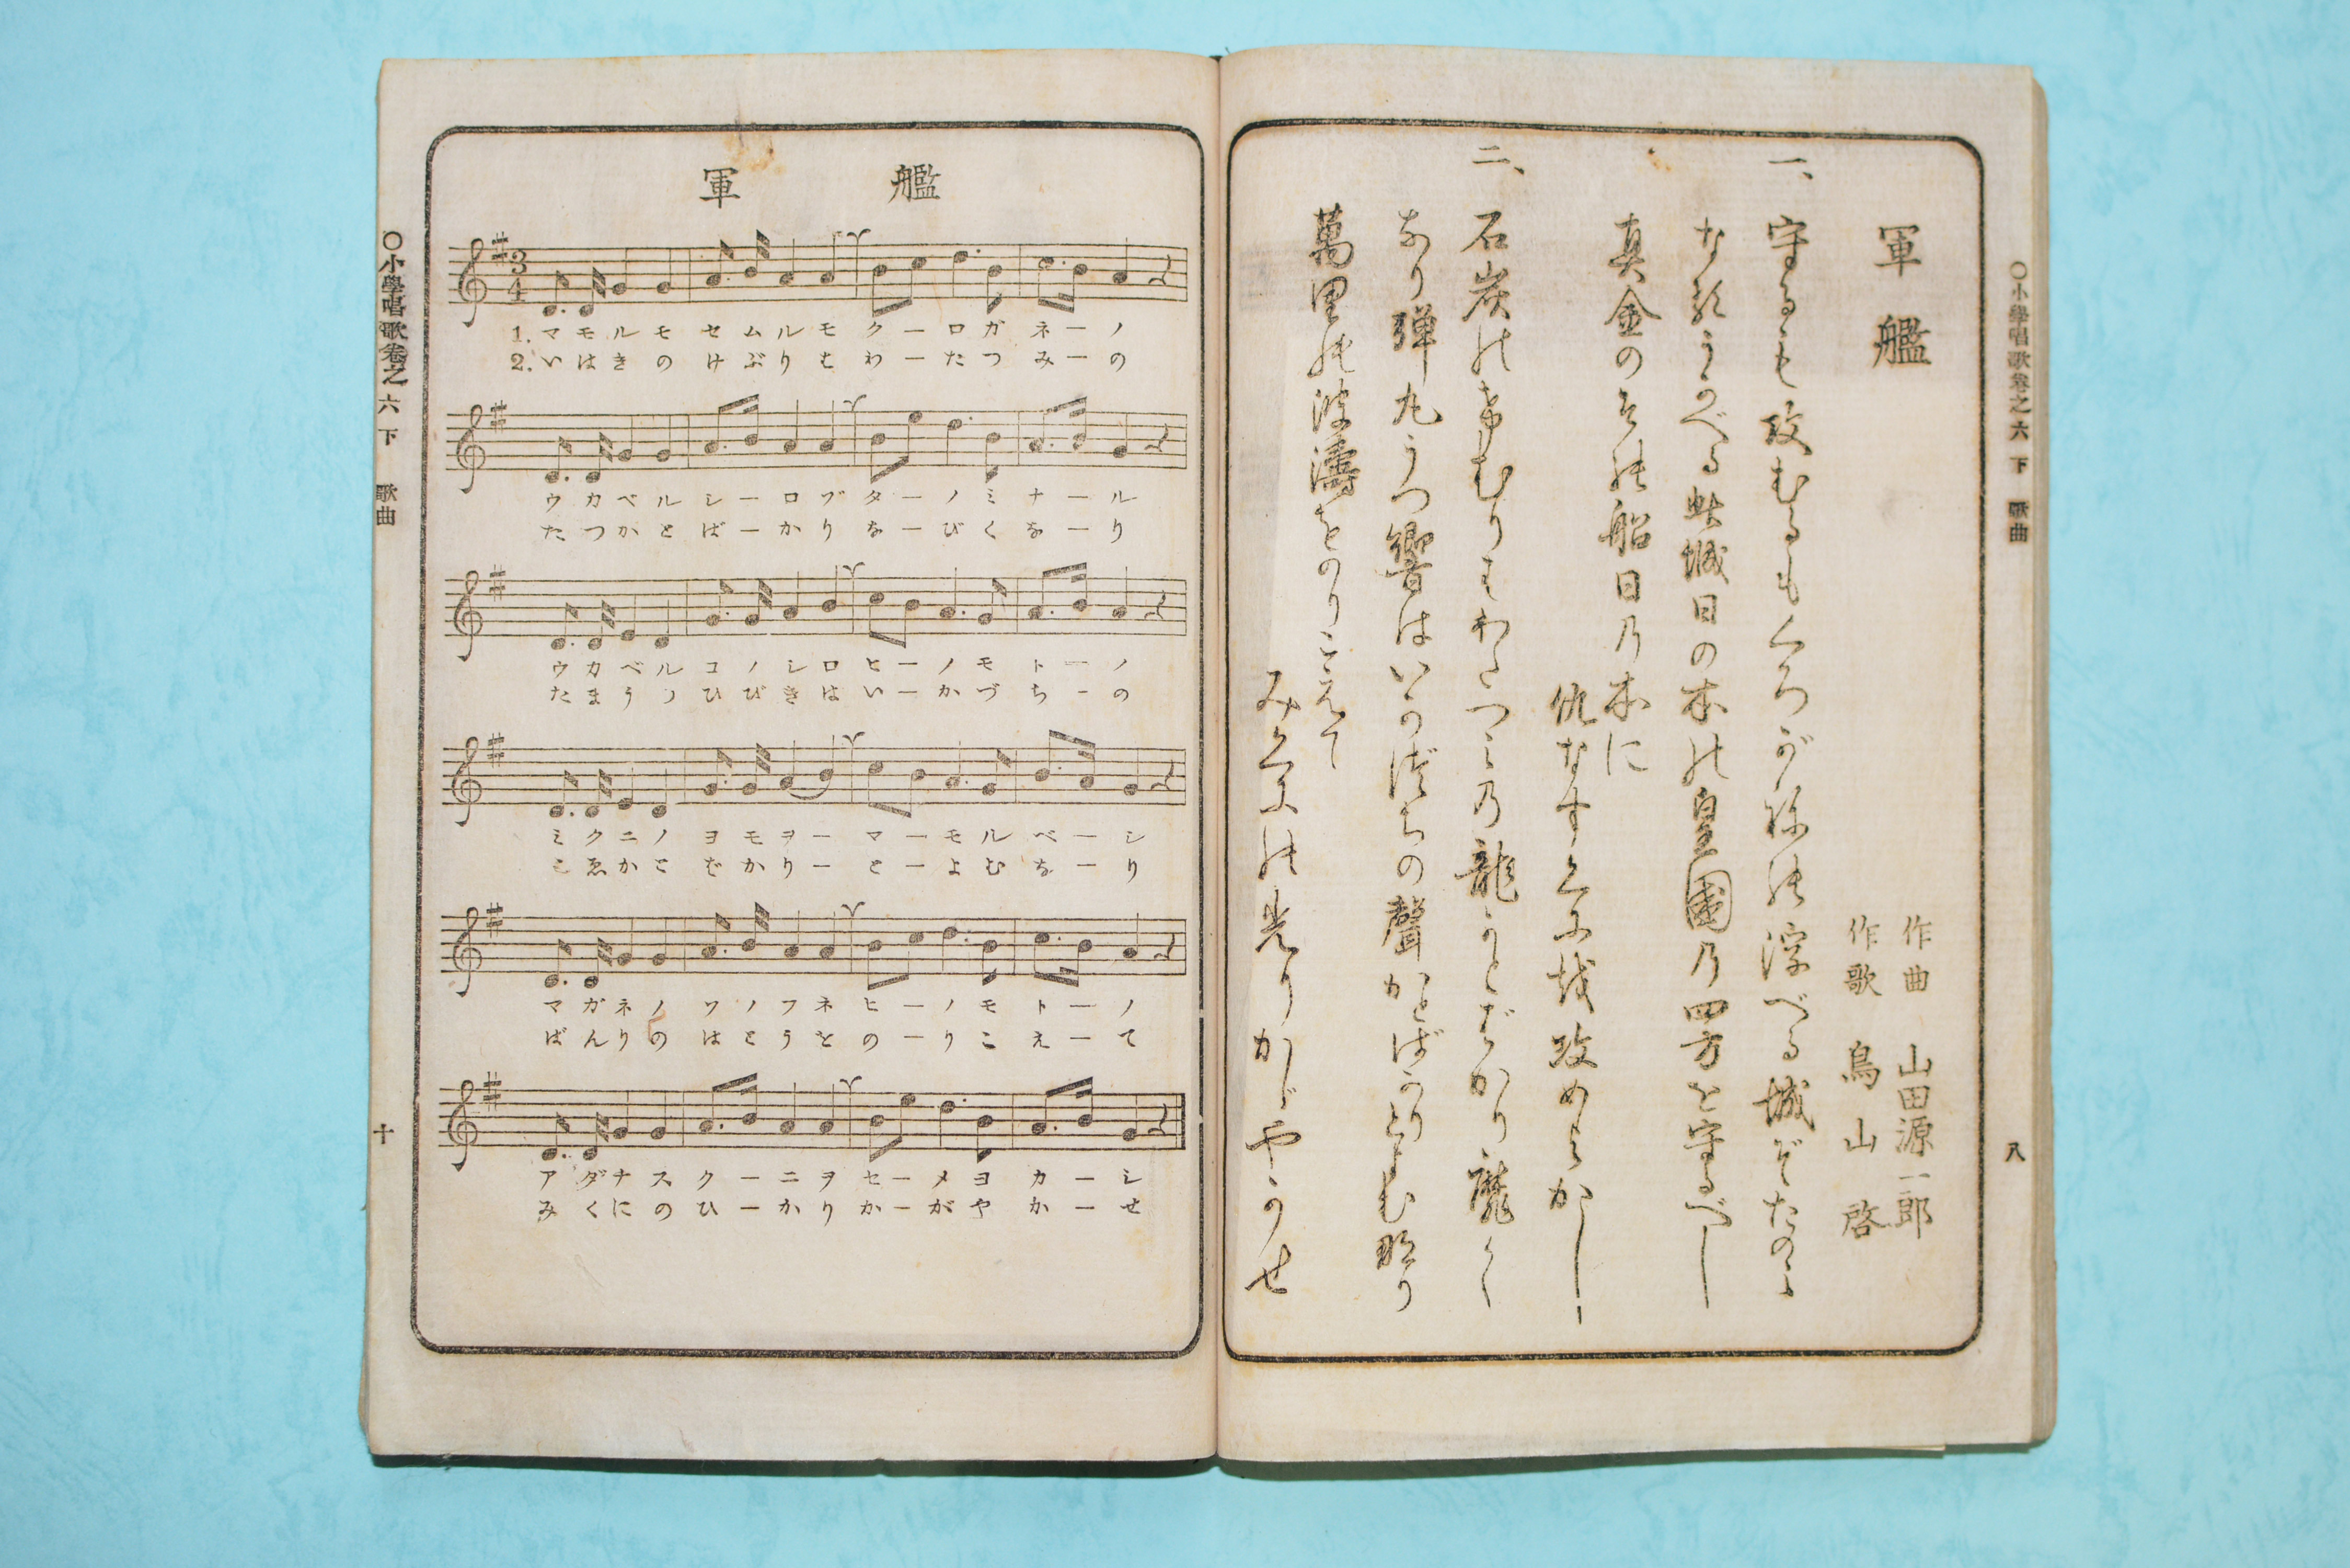 〇小學唱歌卷之六下 歌曲 八
軍艦
作曲 山田源一郎
作歌 鳥山啓
一、守るも攻むるもくろがねの浮べる城ぞたのみ
なるうかべる此城日の本の皇國乃四方を守るべし
真金のその船日乃本に
仇なすくにを攻めよかし
二、石炭のけむりはわたつみ乃龍かとばかり靡く
なり弾丸うつ響はいかづちの聲かとばかりどよむなり
萬里の波濤をのりこえて
みくにの光りかゞやかせ
軍艦
3
4
1. マモルモ セムルモ クーロガ ネーノ
2. いはきの けぶりは わーたつ みーの
ウカベル シーロゾ ターノミ ナール
たつかと ばーかり なーびく なーり
ウカベル コノシロ ヒーノモ トーノ
たまうつ ひびきは いーかづ ちーの
ミクニノ ヨモヲー マーモル ベーシ
こゑかと ばかりー とーよむ なーり
マガネノ ソノフネ ヒーノモ トーノ
ばんりの はとうを のーりこ えーて
アダナス クーニヲ セーメヨ カーシ
みくにの ひーかり かーがや かーせ
〇小學唱歌卷之六下 歌曲 十